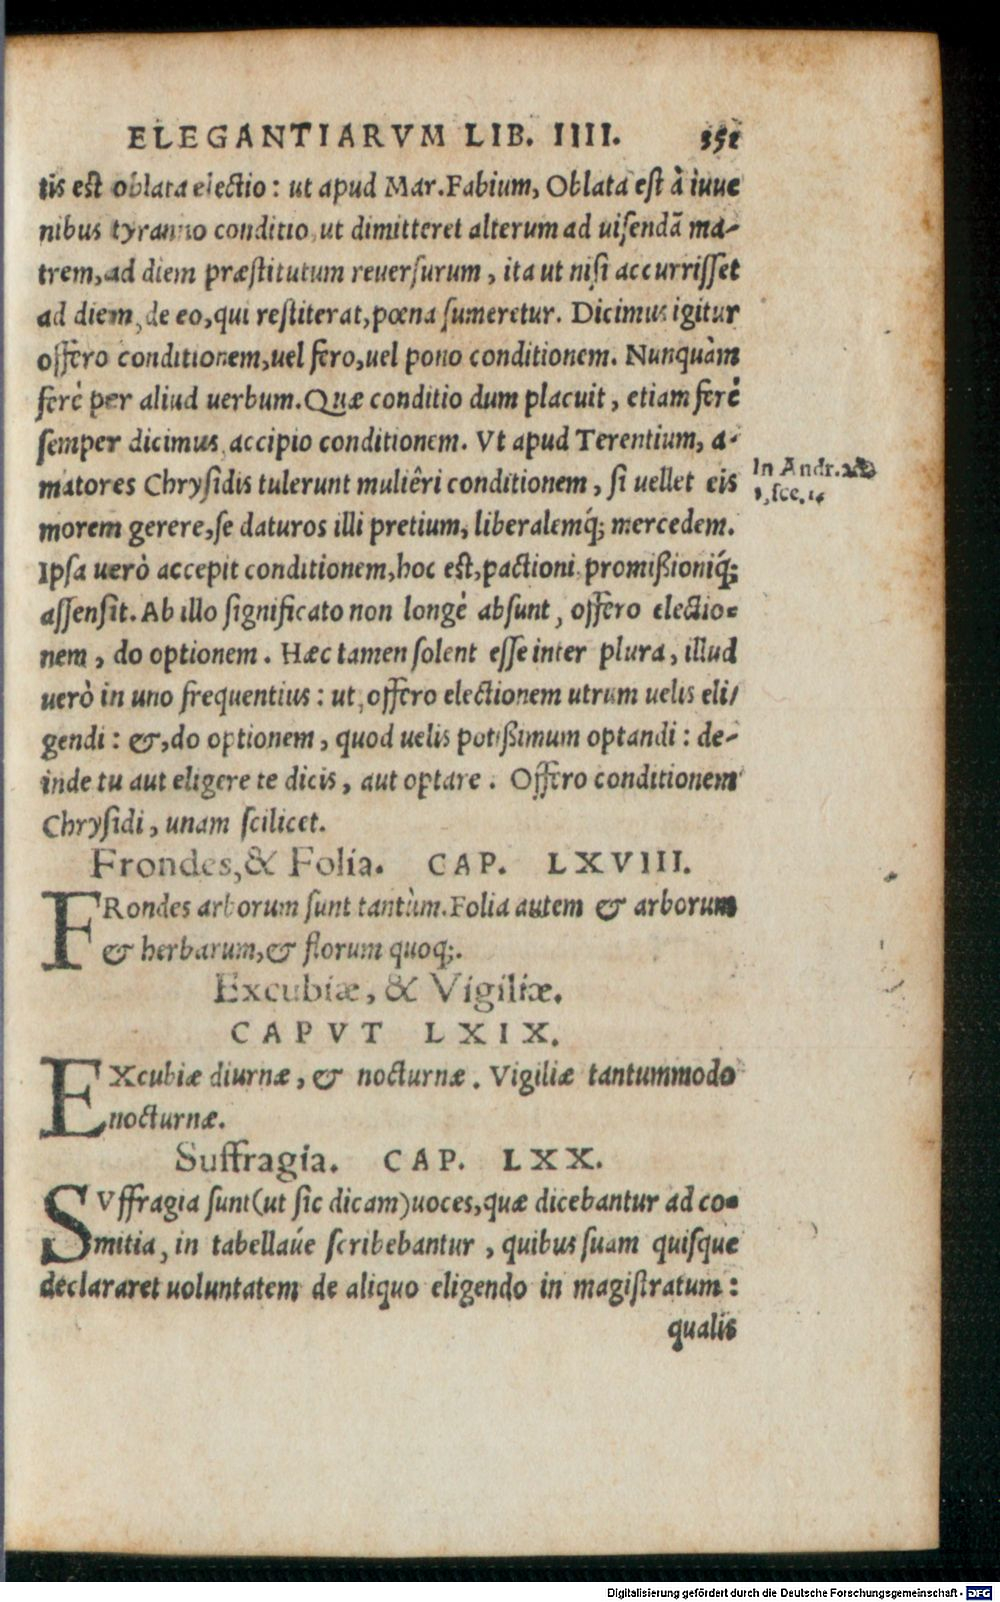 ELEGANTIARVM LIB. IIII. 251
tis est oblata electio: ut apud Mar. Fabium, Oblata est à iuue
nibus tyranno conditio, ut dimitteret alterum ad uisendã ma-
trem, ad diem præstitutum reuersurum, ita ut nisi accurrisset
ad diem, de eo, qui restiterat, pœna sumeretur. Dicimus igitur
offero conditionem, uel fero, uel pono conditionem. Nunquàm
ferè per aliud uerbum. Quæ conditio dum placuit, etiam ferè
semper dicimus, accipio conditionem. Vt apud Terentium, a-
matores Chrysidis tulerunt muliêri conditionem, si uellet eis
In Andr. act
1, sce. 1.
morem gerere, se daturos illi pretium, liberalemq́; mercedem.
Ipsa uerò accepit conditionem, hoc est, pactioni, promißioniq́;
assensit. Ab illo significato non longè absunt, offero electio-
nem, do optionem. Hæc tamen solent esse inter plura, illud
uerò in uno frequentius: ut, offero electionem utrum uelis eli/
gendi: &, do optionem, quod uelis potißimum optandi: de-
inde tu aut eligere te dicis, aut optare. Offero conditionem
Chrysidi, unam scilicet.
Frondes, & Folia. CAP. LXVIII.
FRondes arborum sunt tantùm. Folia autem & arborum
& herbarum, & florum quoq;.
Excubiæ, & Vigiliæ.
CAPVT LXIX.
EXcubiæ diurnæ, & nocturnæ. Vigiliæ tantummodo
nocturnæ.
Suffragia. CAP. LXX.
SVffragia sunt (ut sic dicam) uoces, quæ dicebantur ad co-
mitia, in tabellaúe scribebantur, quibus suam quisque
declararet uoluntatem de aliquo eligendo in magistratum:
qualis
Digitalisierung gefördert durch die Deutsche Forschungsgemeinschaft - DFG